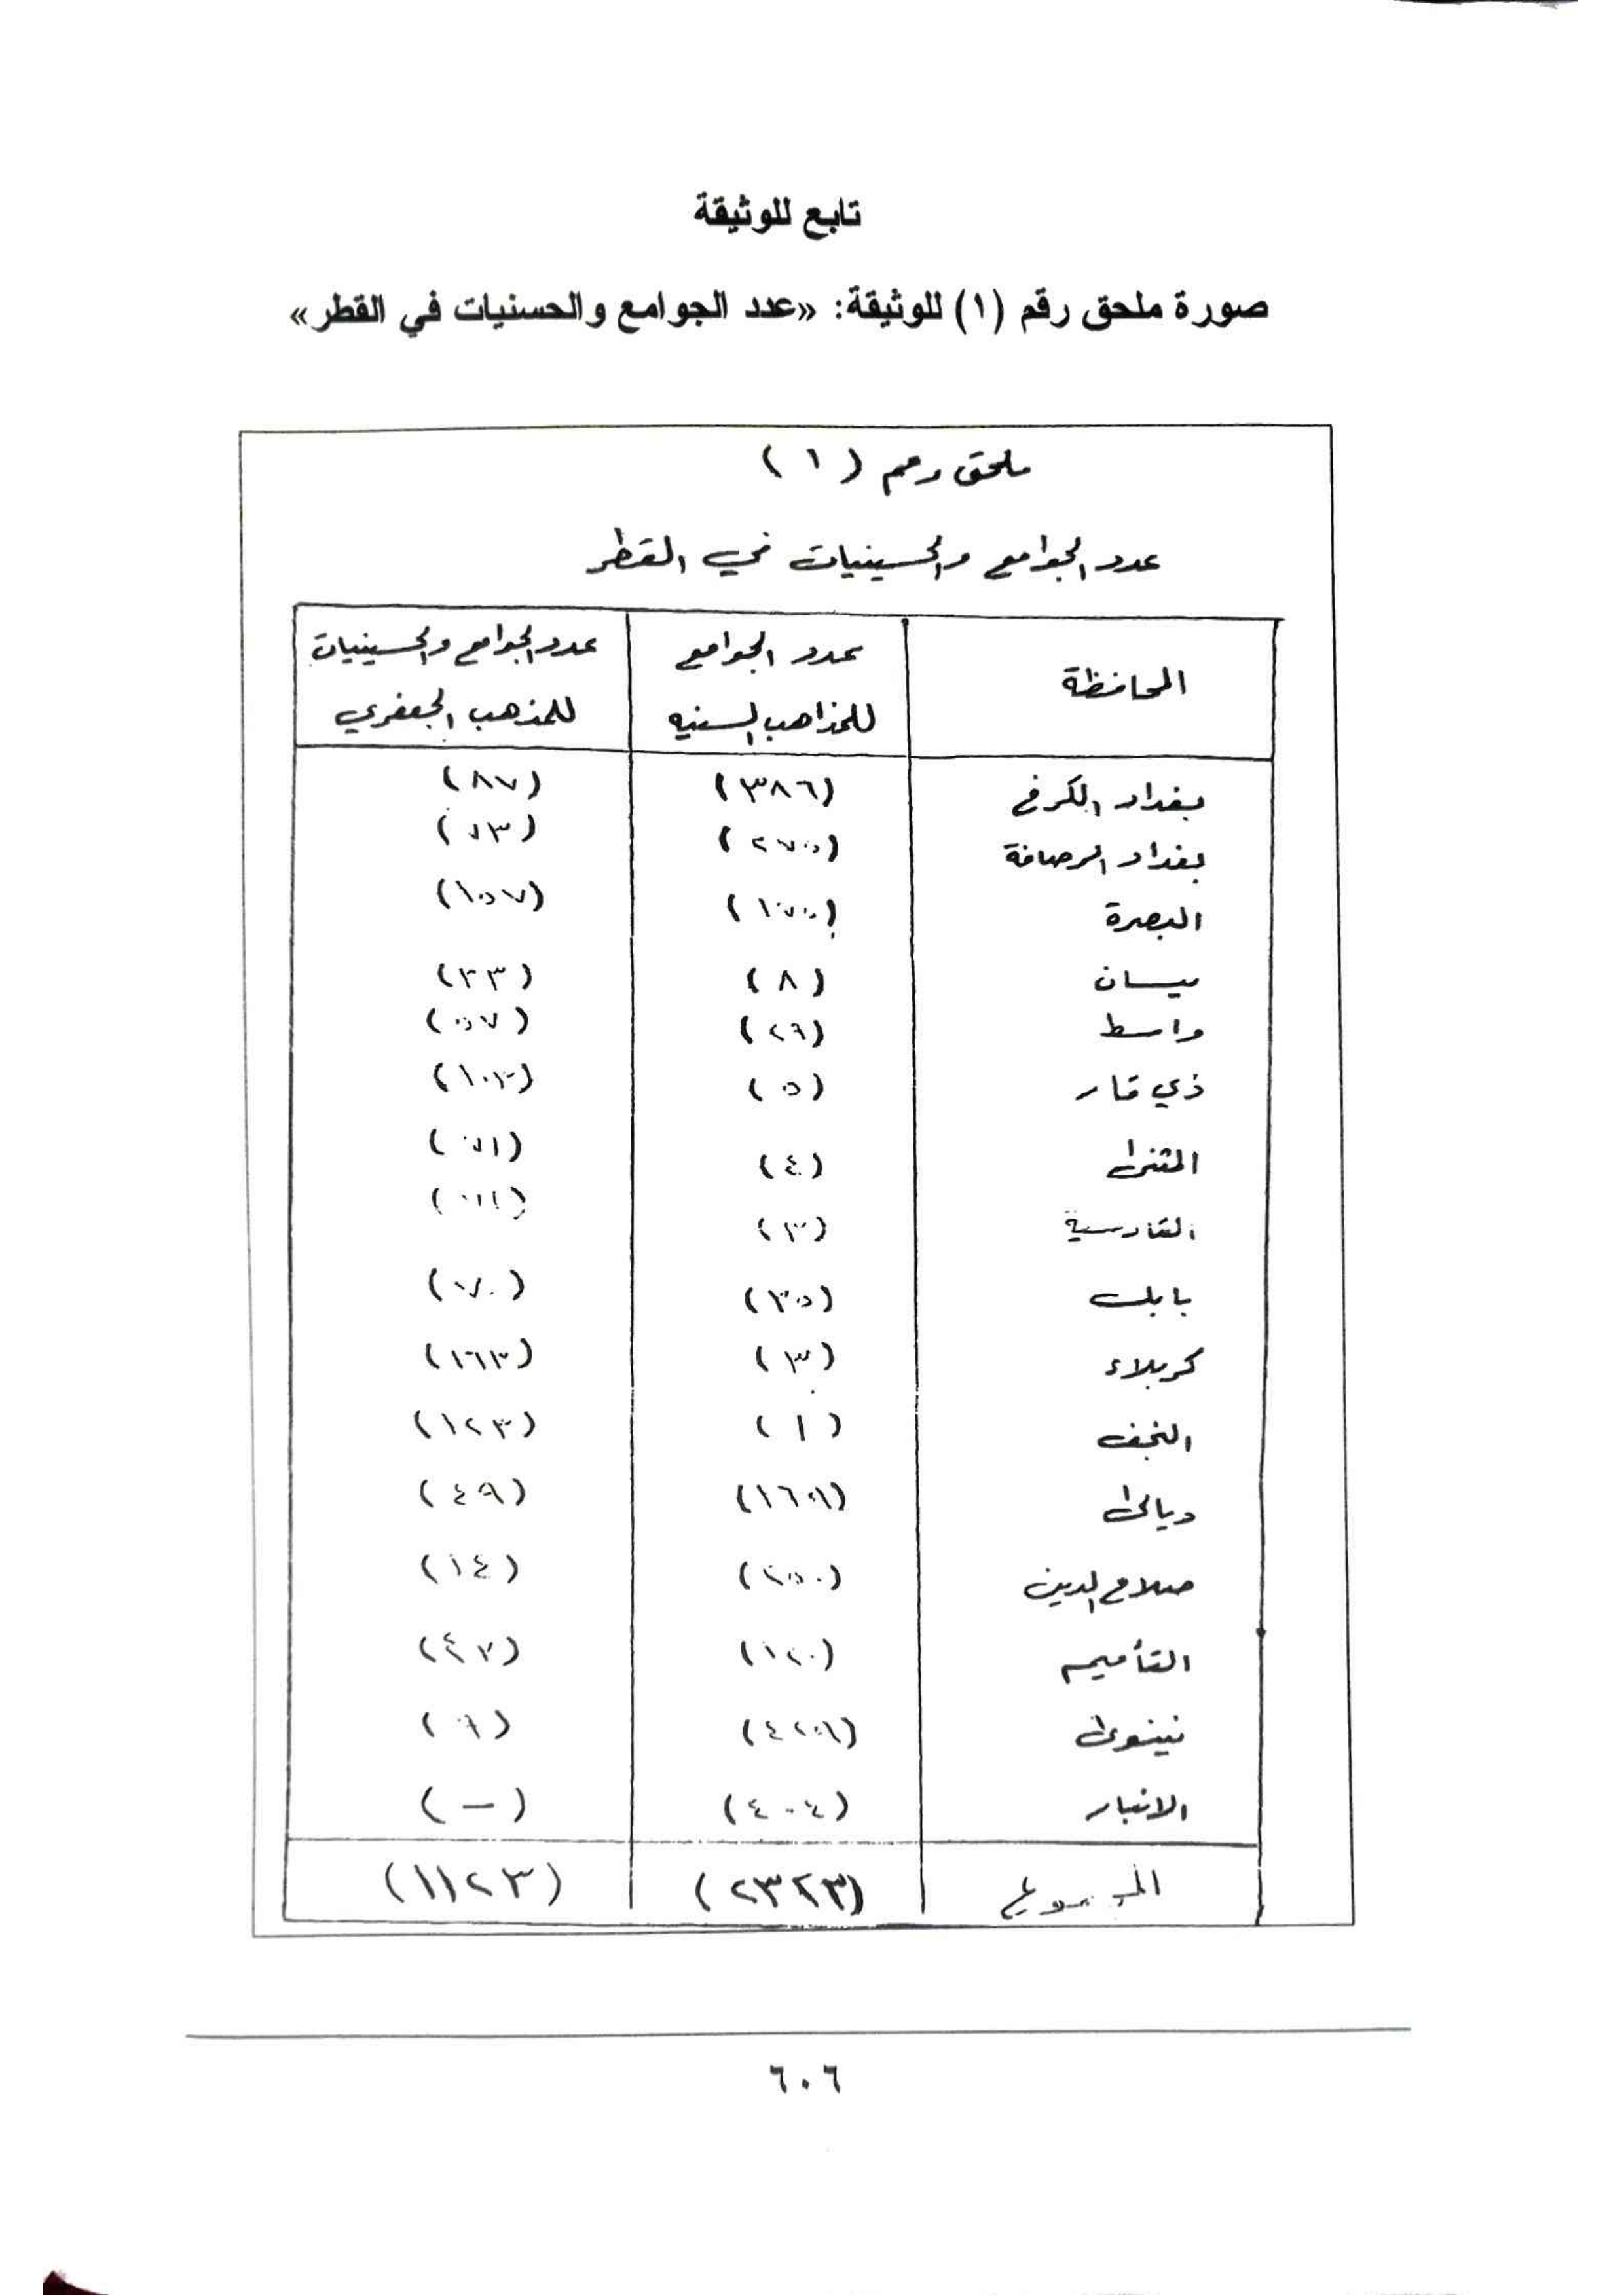 تابع للوثيقة
صورة ملحق رقم (١) للوثيقة: «عدد الجوامع والحسنيات في القطر»
ملحق رقم (١)
عدد الجوامع والحسينيات في القطر
المحافظة عدد الجوامع للمذاهب السنيه عدد الجوامع والحسينيات للمذهب الجعفري
بغداد الكرخ (٣٨٦) (٨٧)
بغداد الرصافة (٢٧٥)
البصرة (١٥٧)
ميسان (٨) (٣٣)
واسط (٢٦) (٥٧)
ذي قار (٥) (١٠٣)
المثنى (٤)
القادسية (٣)
بابل (٣٥) (٧٠)
كربلاء (٣) (١٦٣)
النجف (١) (١٢٣)
ديالى (٤٩)
صلاح الدين (٢٥٠) (١٤)
التأميم (١٢٠) (٤٧)
نينوى
الانبار (٤٠٤) (–)
المجموع (٢٣٢٣) (١١٢٣)
٦٠٦